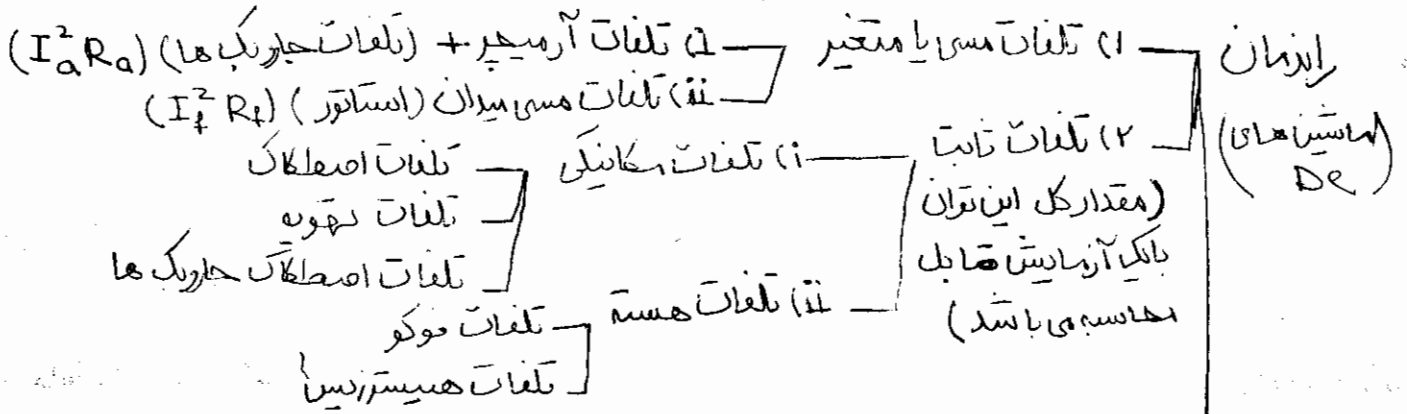 راندمان (ماشین های DC)
۱) تلفات مسی یا متغیر
i) تلفات آرمیچر + (تلفات جاروبک ها) (I_a^2 R_a)
ii) تلفات مسی میدان (استاتور) (I_f^2 R_f)
۲) تلفات ثابت
(مقدار کل این توان
با یک آزمایش قابل
محاسبه می باشد)
i) تلفات مکانیکی
تلفات اصطکاک
تلفات تهویه
تلفات اصطکاک جاروبک ها
ii) تلفات هسته
تلفات فوکو
تلفات هیسترزیس